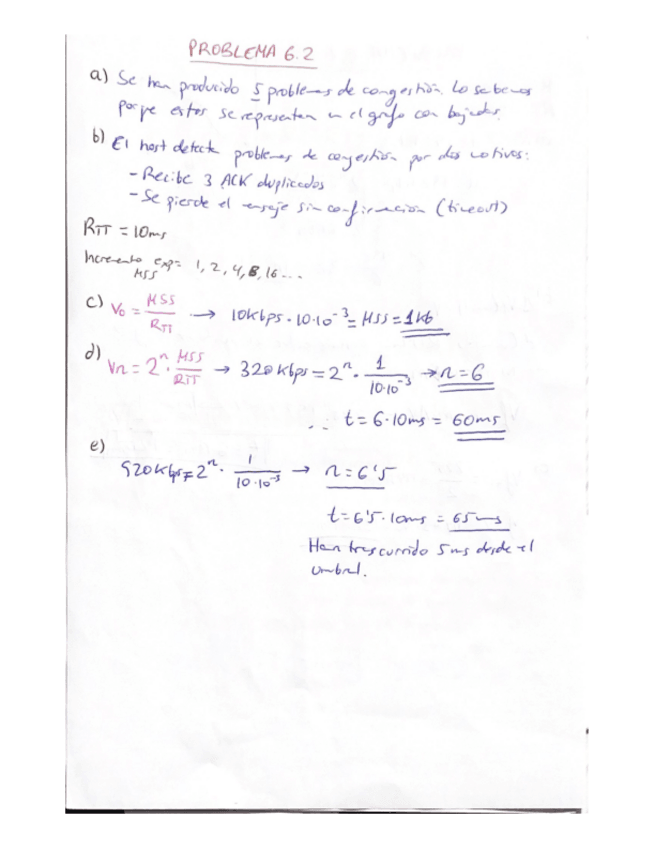 PROBLEMA 6.2
a) Se han producido 5 problemas de congestión. Lo sabemos
porque estos se representan en el grafo con bajadas.
b) El host detecta problemas de congestión por dos motivos:
- Recibe 3 ACK duplicados
- Se pierde el mensaje sin confirmación (timeout)
RTT = 10ms
Incremento exp= 1, 2, 4, 8, 16 ...
MSS
c) V₀ = MSS / RTT → 10Kbps · 10·10⁻³ = MSS = 1Kb
d) Vn = 2ⁿ · MSS / RTT → 320Kbps = 2ⁿ · 1 / 10·10⁻³ → n = 6
∴ t = 6·10ms = 60ms
e)
520Kbps = 2ⁿ · 1 / 10·10⁻³ → n = 6'5
t = 6'5·10ms = 65ms
Han trascurrido 5ms desde el
umbral.